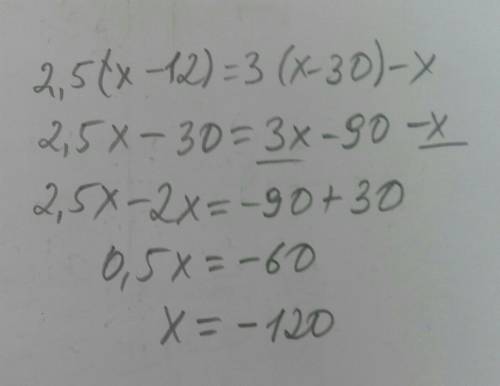 2,5(x-12)=3(x-30)-x
2,5x-30=3x-90-x
2,5x-2x=-90+30
0,5x=-60
x=-120